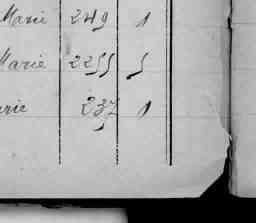 Marie 249 1
Marie 2255 5
arie 237 1